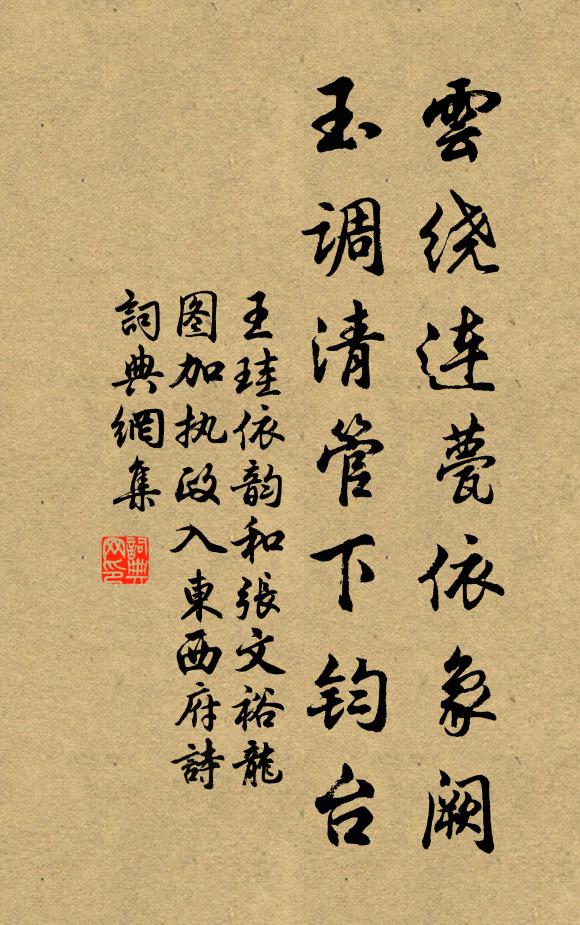 雲绕连甍依象阙
玉调清管下钧台
王珪依韵和張文裕龍
图加执政入東西府詩
詞典網集
詞典
网印